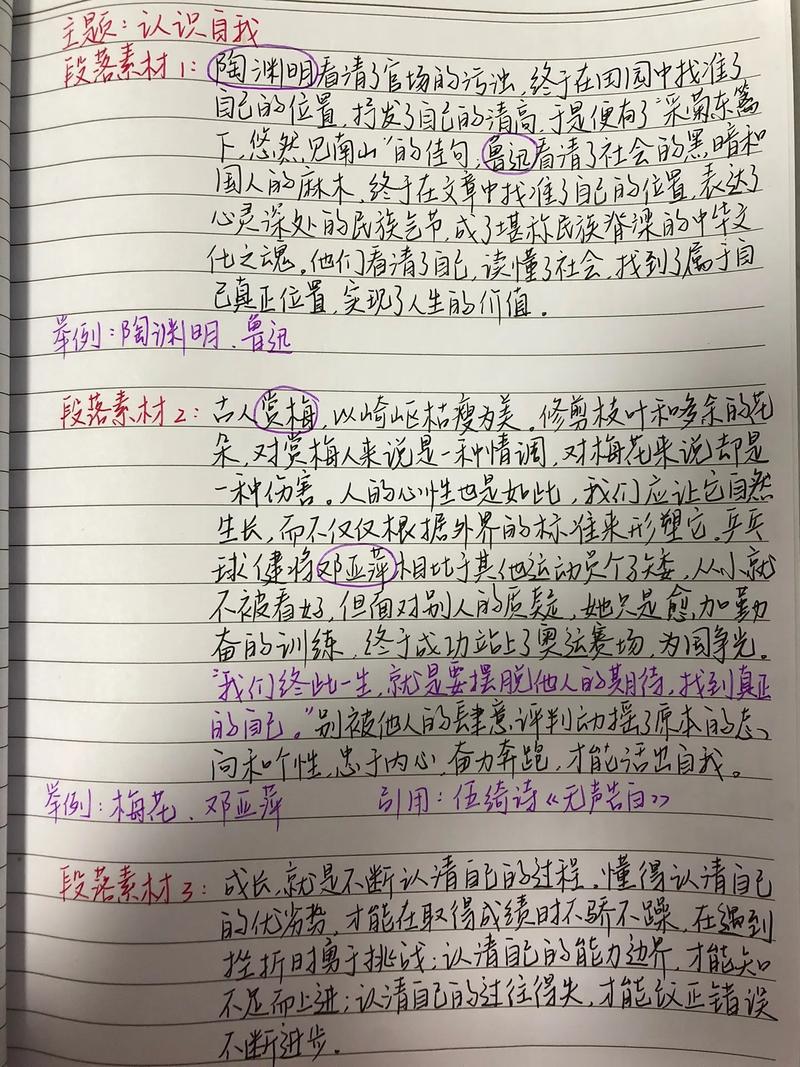 主题：认识自我
段落素材1：陶渊明看清了官场的污浊，终于在田园中找准了
自己的位置，抒发了自己的清高，于是便有了“采菊东篱
下，悠然见南山”的佳句，鲁迅看清了社会的黑暗和
国人的麻木，终于在文章中找准了自己的位置，表达了
心灵深处的民族气节，成了堪称民族脊梁的中华文
化之魂。他们看清了自己，读懂了社会，找到了属于自
己真正位置，实现了人生的价值。
举例：陶渊明、鲁迅
段落素材2：古人赏梅，以崎岖枯瘦为美。修剪枝叶和多余的花
朵，对赏梅人来说是一种情调，对梅花来说却是
一种伤害。人的心性也是如此，我们应让它自然
生长，而不仅仅根据外界的标准来形塑它。乒乓
球健将邓亚萍相比于其他运动员个子矮，从小就
不被看好，但面对别人的质疑，她只是愈加勤
奋的训练，终于成功站上了奥运赛场，为国争光。
“我们终此一生，就是要摆脱他人的期待，找到真正
的自己。”别被他人的肆意评判动摇了原本的志
向和个性，忠于内心，奋力奔跑，才能活出自我。
举例：梅花、邓亚萍 引用：伍绮诗《无声告白》
段落素材3：成长，就是不断认清自己的过程。懂得认清自己
的优劣势，才能在取得成绩时不骄不躁，在遇到
挫折时勇于挑战；认清自己的能力边界，才能知
不足而上进；认清自己的过往得失，才能改正错误
不断进步。